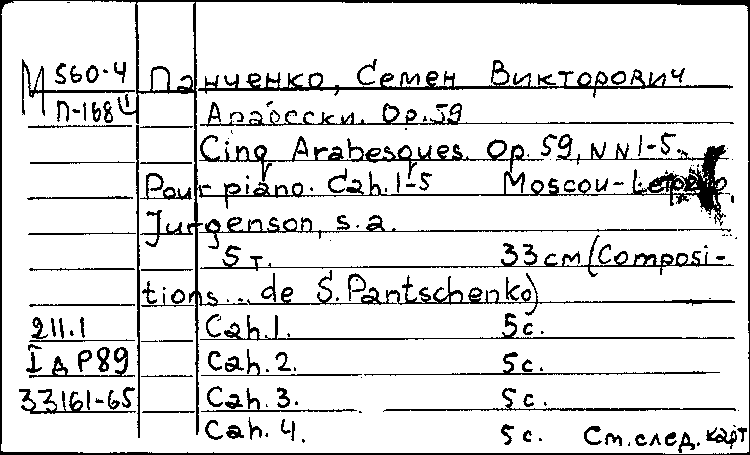 М 560-4 Панченко, Семен Викторович
П-168 Арабески. Op.59
Cinq Arabesques. Op. 59, NN 1-5.
Pour piano. Cah. 1-5 Moscou-
Jurgenson, s.a.
5 т. 33 см (Composi-
tions... de S. Pantschenko)
211.1 Cah. 1. 5 с.
I д Р89 Cah. 2. 5 с.
33161-65 Cah. 3. 5 с.
Cah. 4. 5 с. См. след. карт